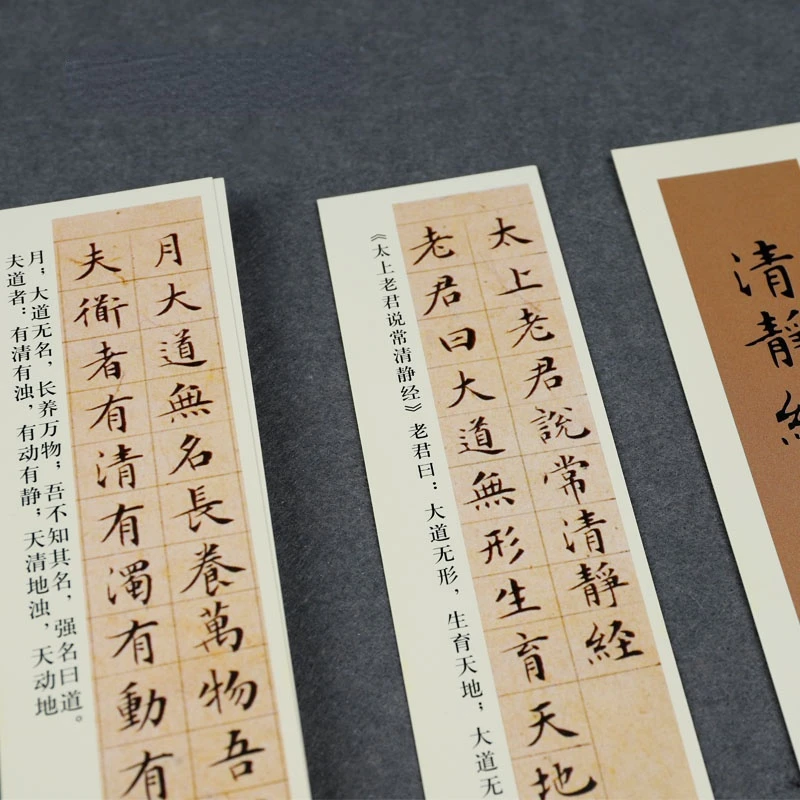 清靜
太上老君說常清靜経
老君曰大道無形生育天地
《太上老君说常清静经》老君曰：大道无形，生育天地；大道无
月大道無名長養萬物吾
夫衜者有清有濁有動有
月；大道无名，长养万物；吾不知其名，强名曰道。
夫道者：有清有浊，有动有静；天清地浊，天动地